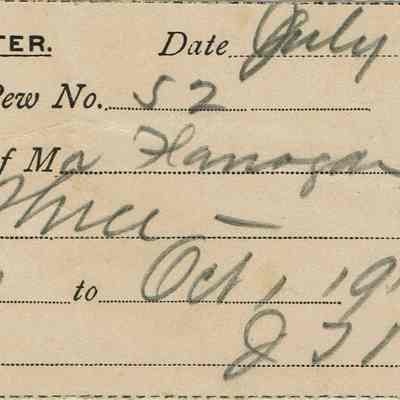 TER. Date July
Pew No. 52
f Mr Flanogan
Three —
to Oct 1, 19
J F